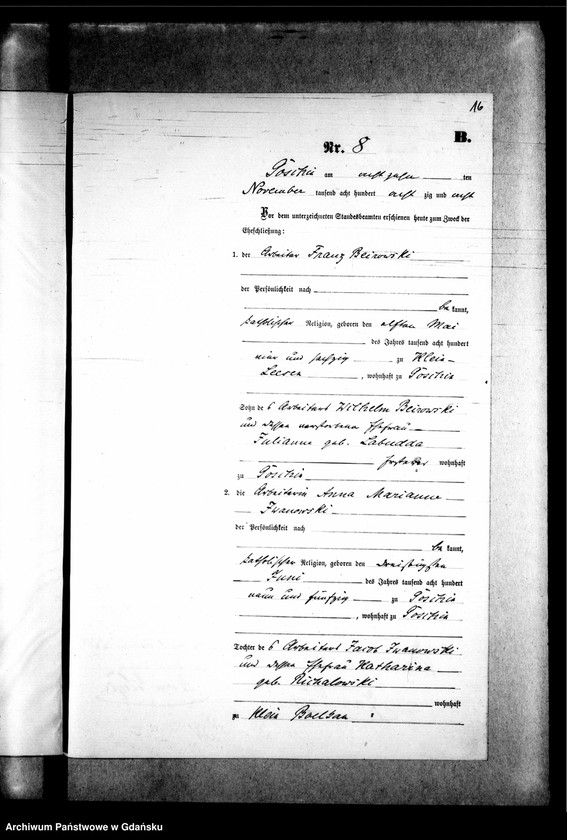 16
B.
Nr. 8
am achtzehn ten
November tausend acht hundert acht zig und acht
Vor dem unterzeichneten Standesbeamten erschienen heute zum Zweck der
Eheschließung:
1. der Arbeiter Franz Beirowski
der Persönlichkeit nach
be kannt,
katholischer Religion, geboren den elften Mai
des Jahres tausend acht hundert
und sechzig zu Klein-
Leesen, wohnhaft zu
Sohn des Arbeiters Wilhelm Beirowski
und dessen verstorbene Ehefrau
Julianne geb. Labudda
wohnhaft
zu
2. die Arbeiterin Anna Marianne
Iwanowski
der Persönlichkeit nach
be kannt,
katholischer Religion, geboren den dreißigsten
Juni des Jahres tausend acht hundert
neun und fünfzig zu
, wohnhaft zu
Tochter des Arbeiters Jacob Iwanowski
und dessen Ehefrau Katharina
geb. Michalowski
wohnhaft
zu Klein Boelkau
Archiwum Państwowe w Gdańsku